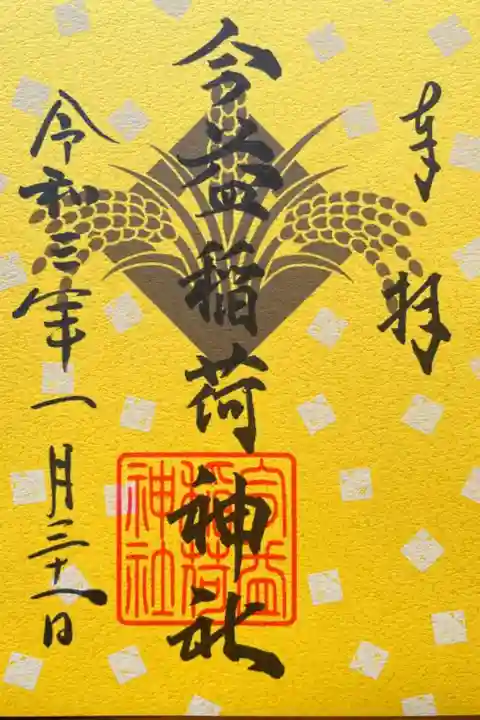 奉拝
益稲荷神社
令和三年一月三十一日
益
稲荷
神社